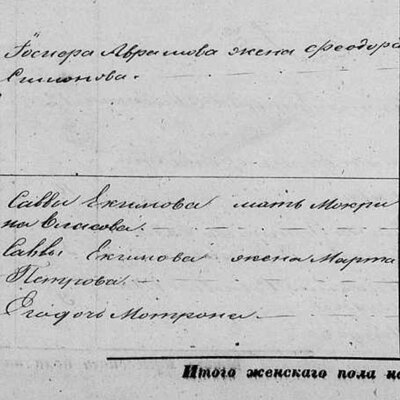 Госифора Аврамова жена Феодора
Симонова.
Саввы Екимова мать Мокри
на Власова.
Саввы Екимова жена Марта
Петрова.
Его дочь Мотрона.
Итого женскаго пола на